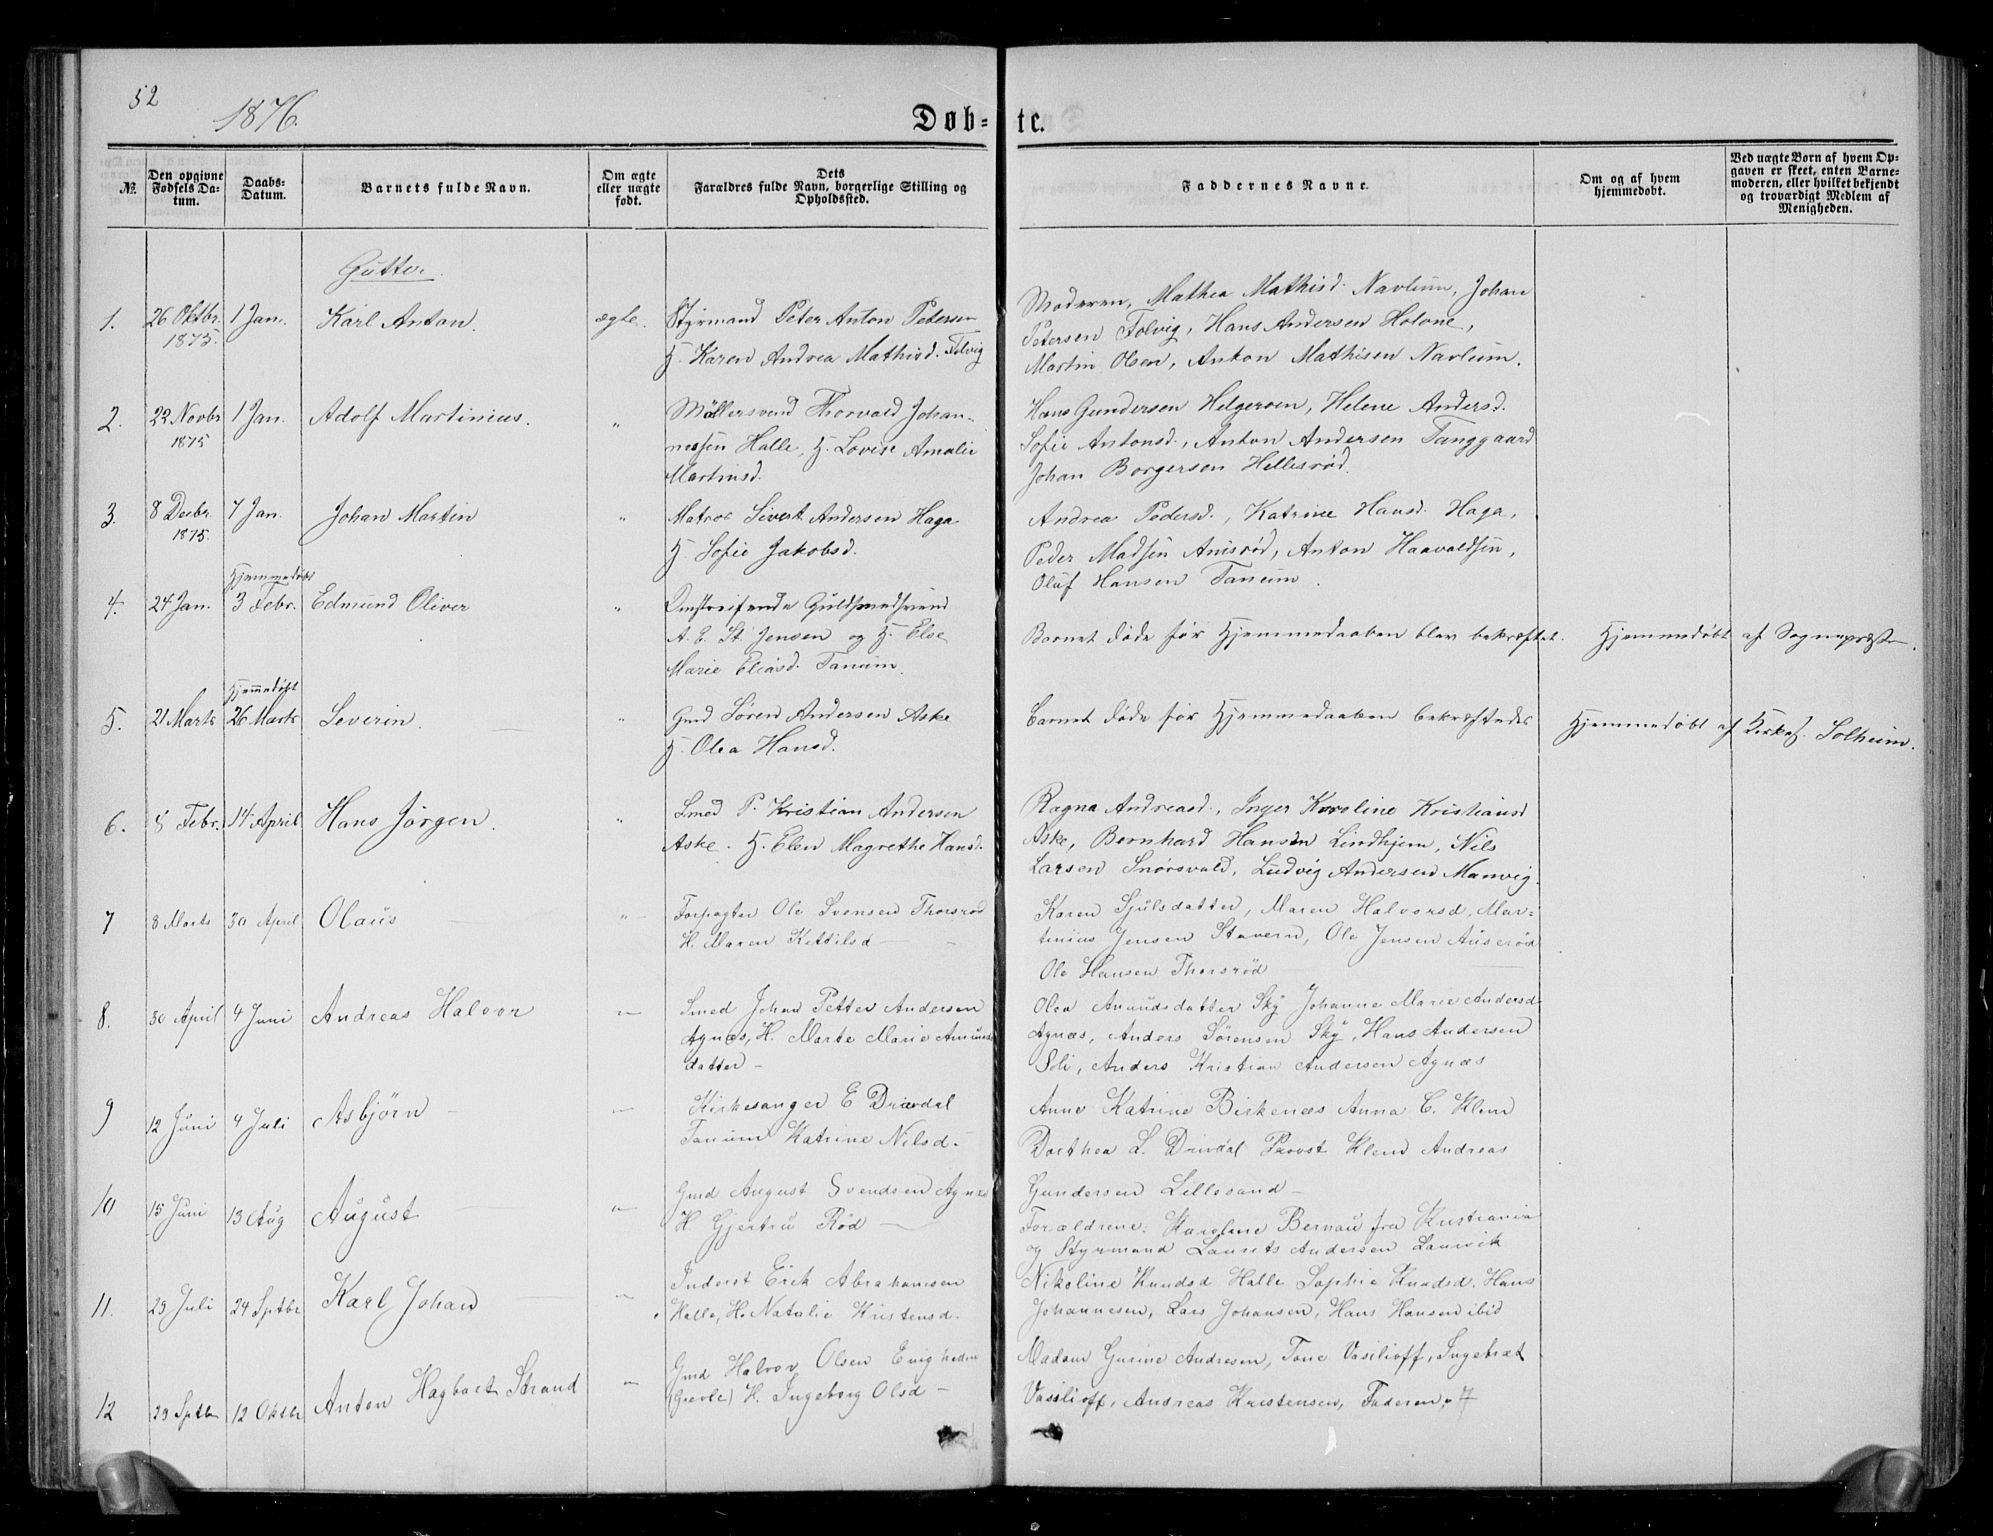 52
1876.
Døb-
te.
№.
Den opgivne Fødsels Da-tum.
Daabs-Datum.
Barnets fulde Navn.
Om ægte eller uægte født.
Dets Forældres fulde Navn, borgerlige Stilling og Opholdssted.
Faddernes Navne.
Om og af hvem hjemmedøbt.
Ved uægte Børn af hvem Op-gaven er skeet, enten Barne-moderen, eller hvilket bekjendt og troværdigt Medlem af Menigheden.
Gutter.
1. 26 Oktbr. 1875. 1 Jan. Karl Anton. ægte. Styrmand Peter Anton Petersen
H. Karen Andrea Mathisd. Folvig
Moderen, Mathea Mathisd. Navlum, Johan
Petersen Folvig, Hans Andersen Holone,
Martin Olsen, Anton Mathisen Navlum.
2. 22 Novbr 1875 1 Jan. Adolf Martinius. " Møllersvend Thorvald Johan-
nessen Halle, H. Lovise Amalie
Martinsd.
Hans Gundersen Helgeroen, Helene Andersd.
Sofie Antonsd., Anton Andersen Tanggaard
Johan Borgersen Hellesrød.
3. 8 Decbr. 1875. 7 Jan. Johan Martin " Matros Sivert Andersen Haga
H. Sofie Jakobsd.
Andrea Pedersd., Katrine Hansd. Haga,
Peder Madsen Anisrød, Anton Haavaldsen,
Oluf Hansen Tanum.
4. 24 Jan. Hjemmedøbt 3 Febr. Edmund Oliver " Omstreifende Guldsmedsvend
A. E. St. Jensen og H. Else
Marie Eliasd. Tanum.
Barnet døde før Hjemmedaaben blev bekræftet. Hjemmedøbt af Sognepræsten.
5. 21 Marts Hjemmedøbt 26 Marts Severin. " Gmd Søren Andersen Aske
H. Olea Hansd.
Barnet døde før Hjemmedaaben bekræftedes Hjemmedøbt af Kirkes. Solheim.
6. 8 Febr. 14 April Hans Jørgen. " Smed P. Kristian Andersen
Aske. H. Elen Magrethe Hansd.
Ragna Andreasd., Inger Karoline Kristiansd
Aske, Bernhard Hansen Lindhjem, Nils
Larsen Snørsvald, Ludvig Andersen Manvig.
7 8 Marts 30 April Olaus " Forpagter Ole Svensen Thorsrød
H. Maren Kettilsd
Karen Sjulsdatter, Maren Halvorsd, Mar-
tinius Jensen Stavern, Ole Jensen Auserød
Ole Hansen Thorsrød
8. 30 April 4 Juni Andreas Halvor " Smed Johan Petter Andersen
Agnæs, H. Marte Marie Amunds
datter
Olea Amundsdatter Sky Johanne Marie Andersd
Agnæs, Anders Sørensen Sky, Hans Andersen
Soli, Anders Kristian Andersen Agnæs
9 12 Juni 4 Juli Asbjørn " Kirkesanger E Drivdal
Tanum Katrine Nilsd.
Anne Katrine Birkenæs Anna C. Klem
Dorthea L. Drivdal Provst Klem Andreas
Gundersen Lillesand
10 15 Juni 13 Aug August " Gmd August Svendsen Agnæs
H Gjertru Rød
Forældrene: Karoline Bernau fra Kristiania
og Styrmand Laurits Andersen Laurvik
11. 29 Juli 24 Sptbr Karl Johan " Inderst Erik Abrahamsen
Halle, H. Natalie Kristensd.
Nikoline Knudsd Halle Sophie Knudsd. Hans
Johannesen, Lars Johansen, Hans Hansen ibid
12 29 Sptbr 12 Oktbr Anton Hagbart Strand " Gmd Halvor Olsen Evigheden
(Grevle) H. Ingeborg Olsd
Madam Gurine Andresen, Tone Vasilioff, Ingebret
Vasilioff, Andreas Kristensen, Faderen.